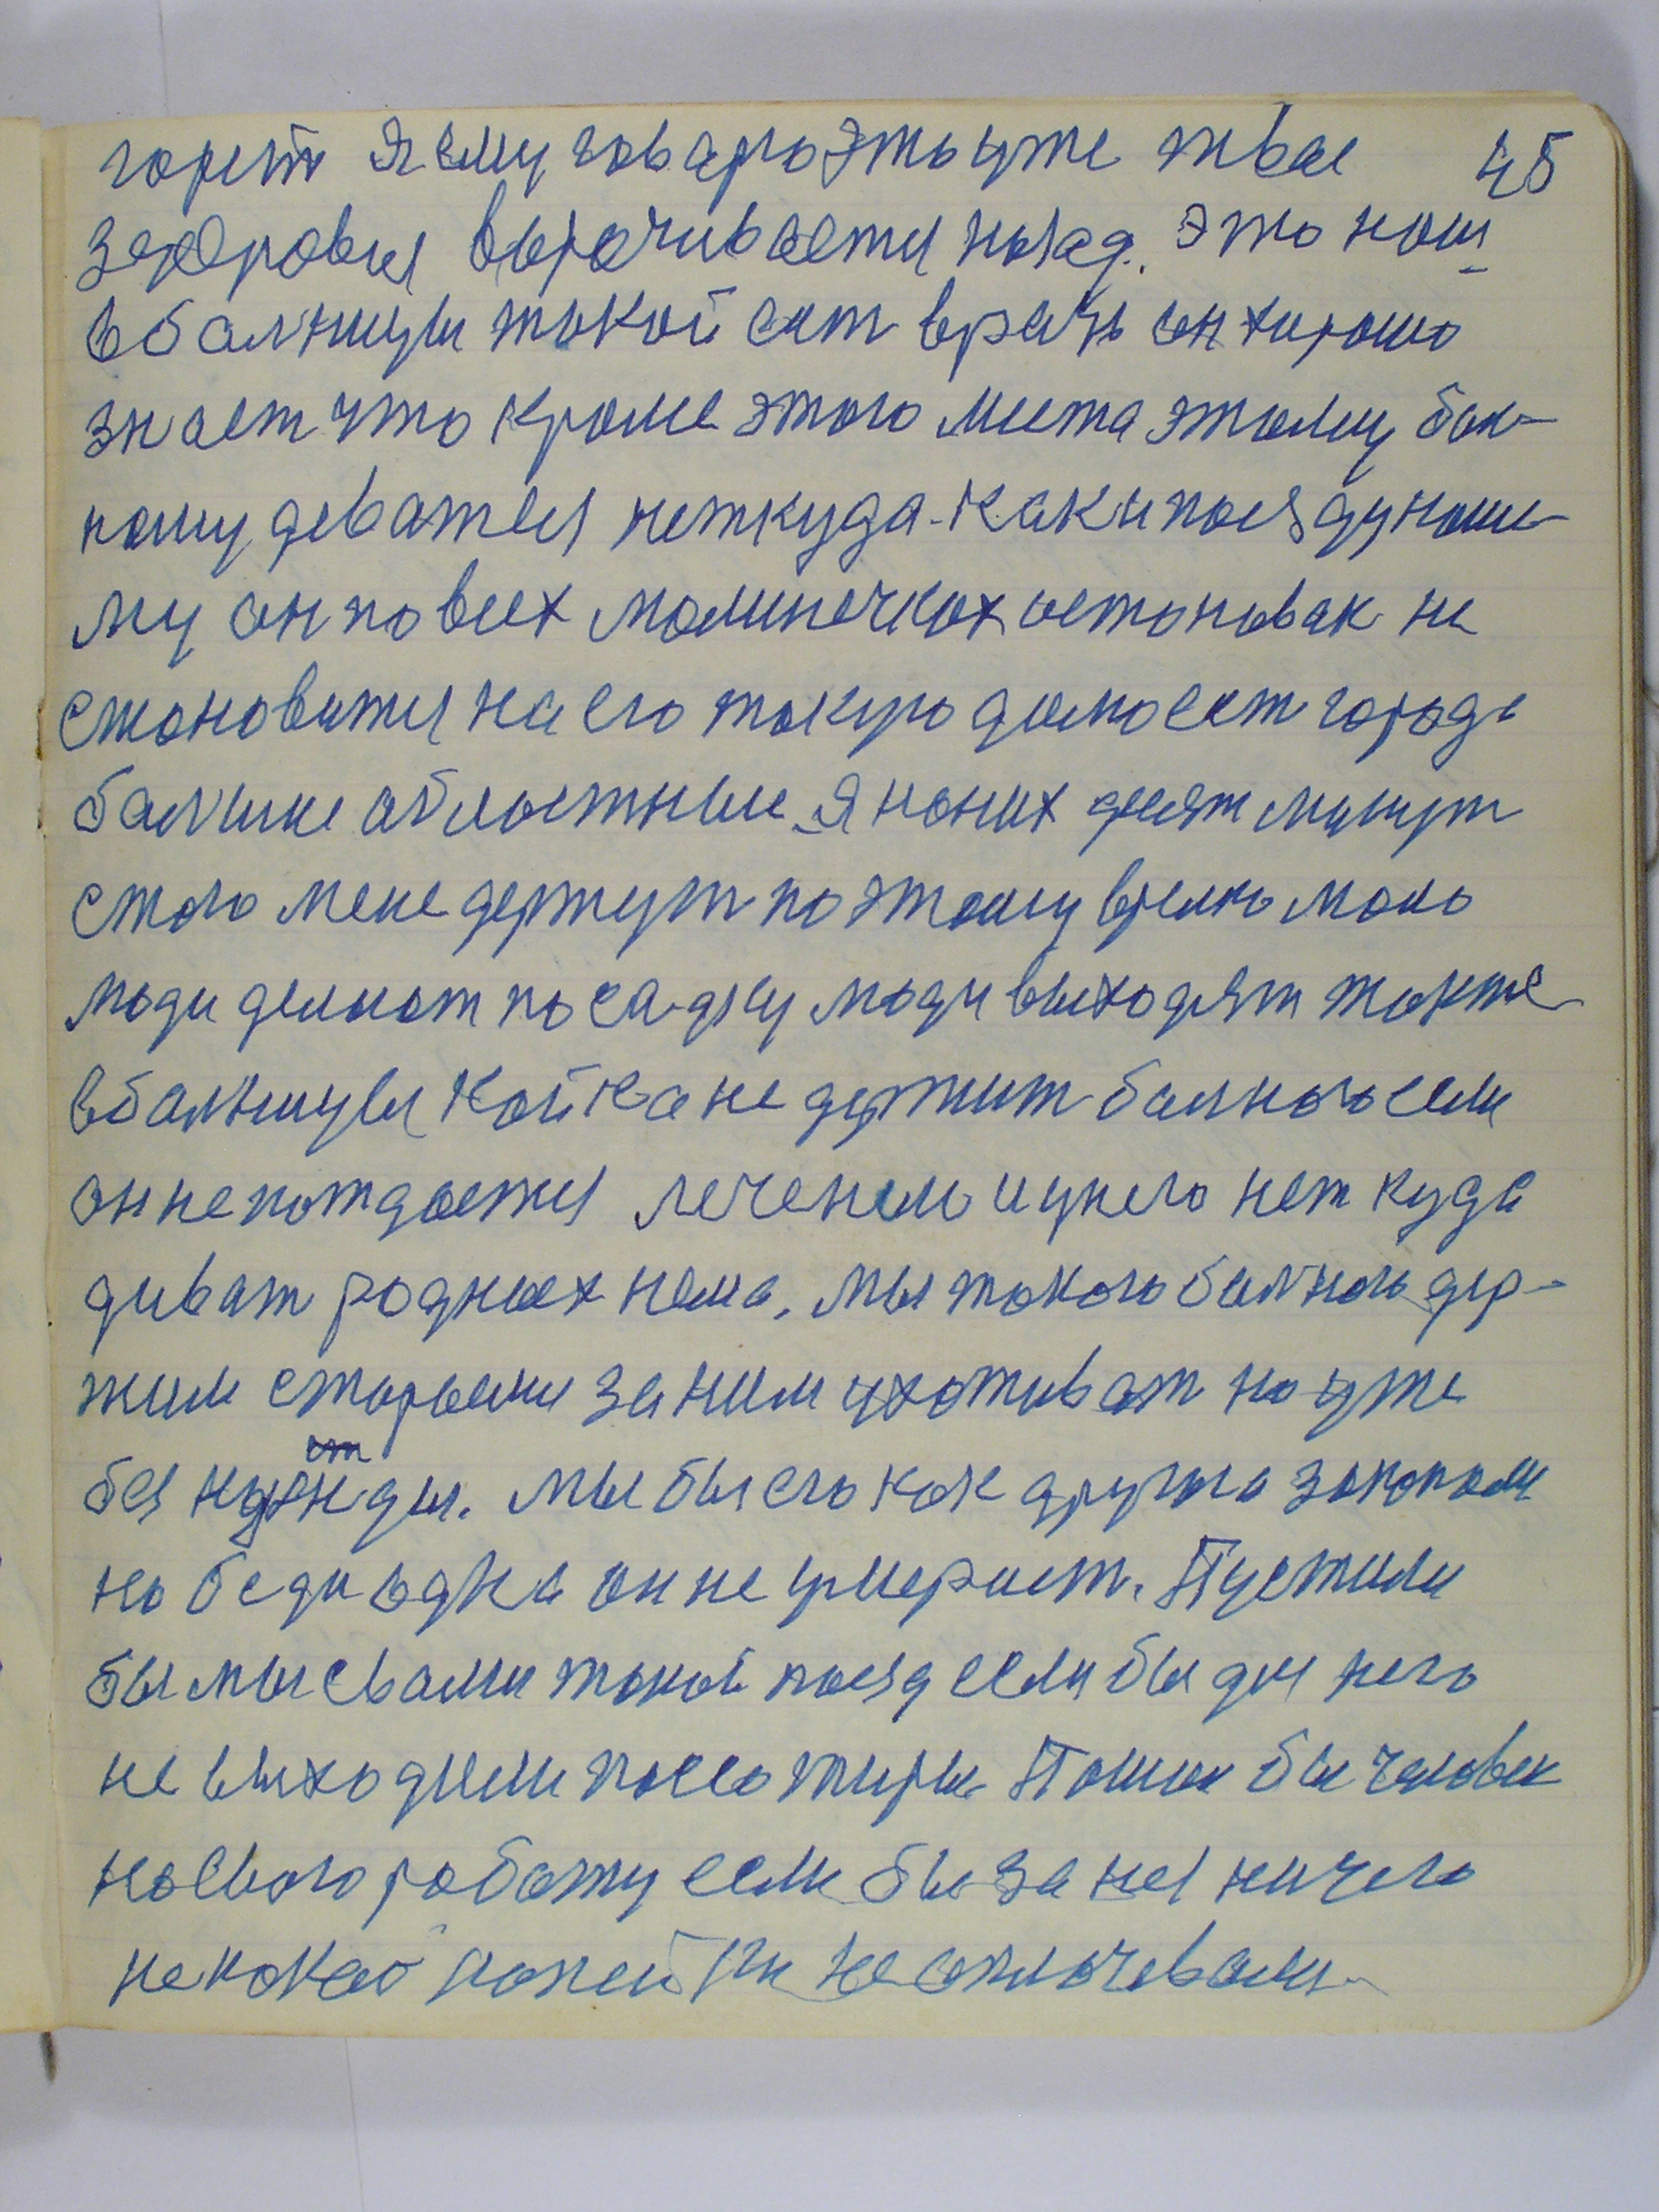 горет Я ему говарю Это уже твае 45
здоровья ворочивается назад. Это наш
в балницы такой ест врачь он харошо
знает что кроме этого места этаму бал-
ному деватся неткуда. Как и поезду наше-
му он по всех маличечких астановак не
становится на его такую дило ест города
балшие областные Я на них десят минут
стою мене держут по этаму время мало
люди делают посадку люди выходят так же
в балницы Койка не держит балного если
он не нождается лечением и у него нет куда
диват родных нема. Мы такого балного дер-
жим старыеми за ним ухаживат но уже
без надежды. Мы бы его как другога закопали
но беда одна он не умерает. Пустили
бы мы с вами такой поезд если бы для него
не выходили пассажиры Пошол бы человек
на свою работу если бы за нея ничего
не какаё копейки не оплачевали.